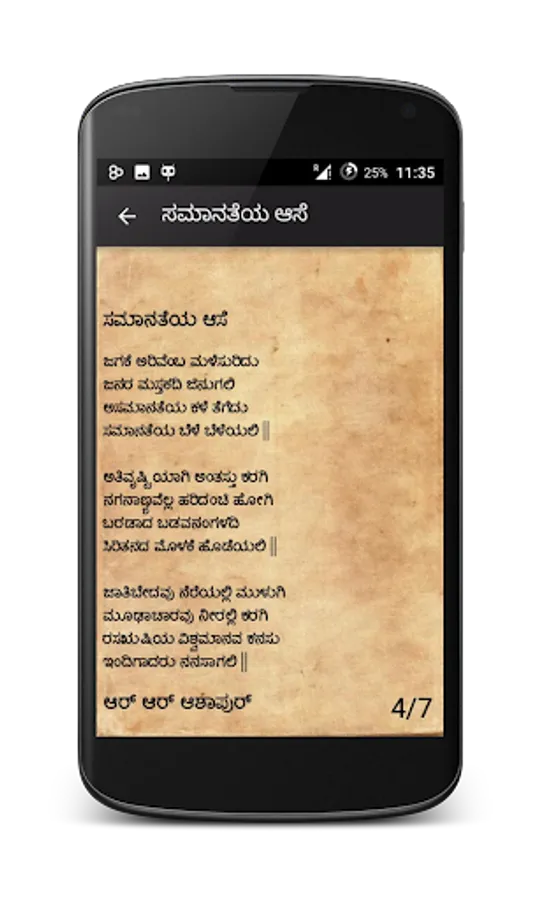 25% 11:35
ಸಮಾನತೆಯ ಆಸೆ
ಸಮಾನತೆಯ ಆಸೆ
ಜಗಕೆ ಅರಿವೆಂಬ ಮಳೆಸುರಿದು
ಜನರ ಮಸ್ತಕದಿ ಜಿನುಗಲಿ
ಅಸಮಾನತೆಯ ಕಳೆ ತೆಗೆದು
ಸಮಾನತೆಯ ಬೆಳೆ ಬೆಳೆಯಲಿ ||
ಅತಿವೃಷ್ಟಿಯಾಗಿ ಅಂತಸ್ತು ಕರಗಿ
ನಗನಾಣ್ಯವೆಲ್ಲ ಹರಿದಂಚಿ ಹೋಗಿ
ಬರಡಾದ ಬಡವನಂಗಳದಿ
ಸಿರಿತನದ ಮೊಳಕೆ ಹೊಡೆಯಲಿ ||
ಜಾತಿಬೇದವು ನೆರೆಯಲ್ಲಿ ಮುಳುಗಿ
ಮೂಢಾಚಾರವು ನೀರಲ್ಲಿ ಕರಗಿ
ರಸಋಷಿಯ ವಿಶ್ವಮಾನವ ಕನಸು
ಇಂದಿಗಾದರು ನನಸಾಗಲಿ ||
ಆರ್ ಆರ್ ಆಶಾಪುರ್
4/7